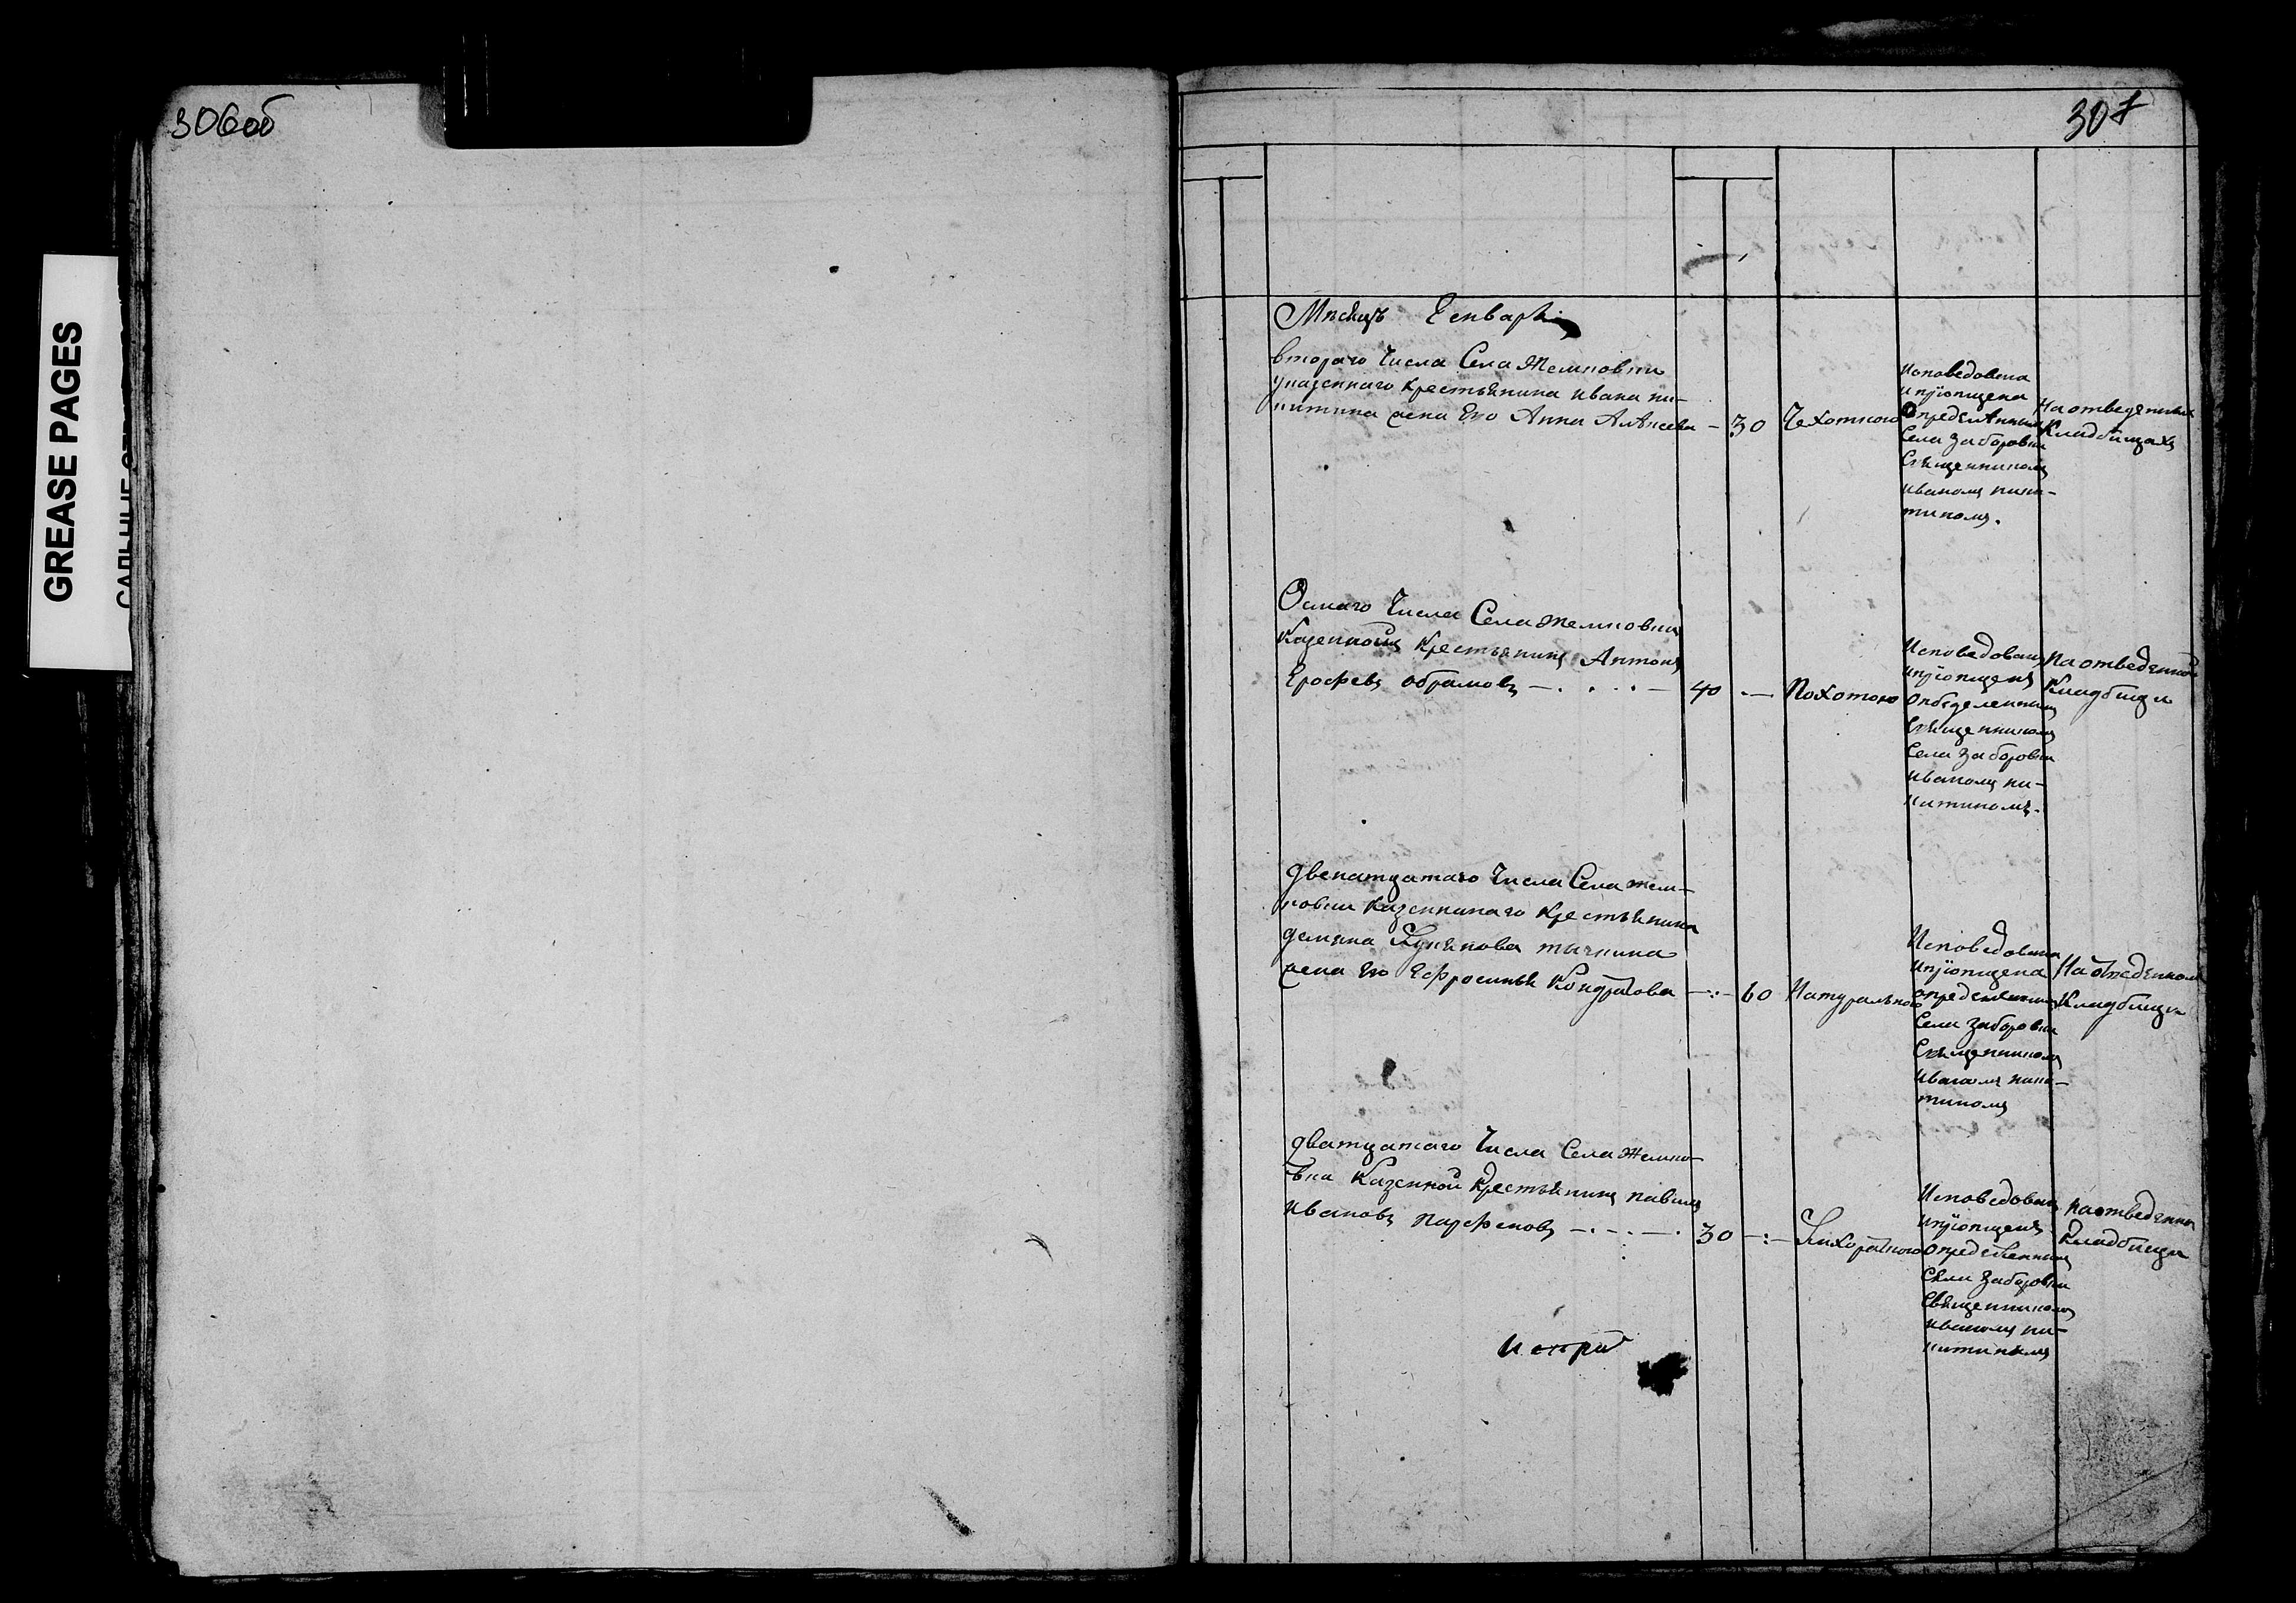 306об
307
GREASE PAGES
Мѣсяцъ Генварь
втораго числа Села Жемковки
Указеннаго крестьянина Ивана ни-
китина жена Его Анна Алѣксеева — 30
Чехотною
Исповедована
иприопщена
определѣнным
Села Заборовки
Священникомъ
Иваномъ ники-
тиномъ.
На отведенныхъ
Кладбищахъ
Осмаго числа Села Жемковки
Казенной крестьянинъ Антонъ
Ерофевъ обрамовъ — 40 —
Чохотою
Исповедованъ
и приопщенъ
определеннымъ
Священникомъ
Села Заборовки
Иваномъ ни-
китиномъ.
На отведенной
Кладбищи
Двенатцатаго числа Села жем-
ковки казенннаго крестьянина
демяна Лукьянова тычкина
жена Его Ефросинья Кондратова — 60
Натуральною
Исповедована
и приопщена
определеннымъ
Села Заборовки
Священникомъ
Иваномъ ники-
тиномъ
На отведенной
Кладбищи
Дватцатаго числа Села Жемко-
вки Казенной крестьянинъ павилъ
Ивановъ парфеновъ — 30 —
Лихораткою
Исповедованъ
и приопщенъ
определеннымъ
Села Заборовки
Священникомъ
Иваномъ ни-
китиномъ
На отведенной
Кладбищи